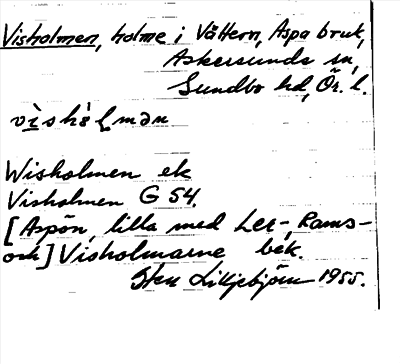 Visholmen, holme i Vättern, Aspa bruk,
Askersunds sn,
Sundbo hd, Ör. l.
vìshòlman
Wisholmen ek
Visholmen G 54.
[Aspön, lilla med Ler-, Rams-
och] Visholmarne bek.
Sten Liljebjörn 1955.